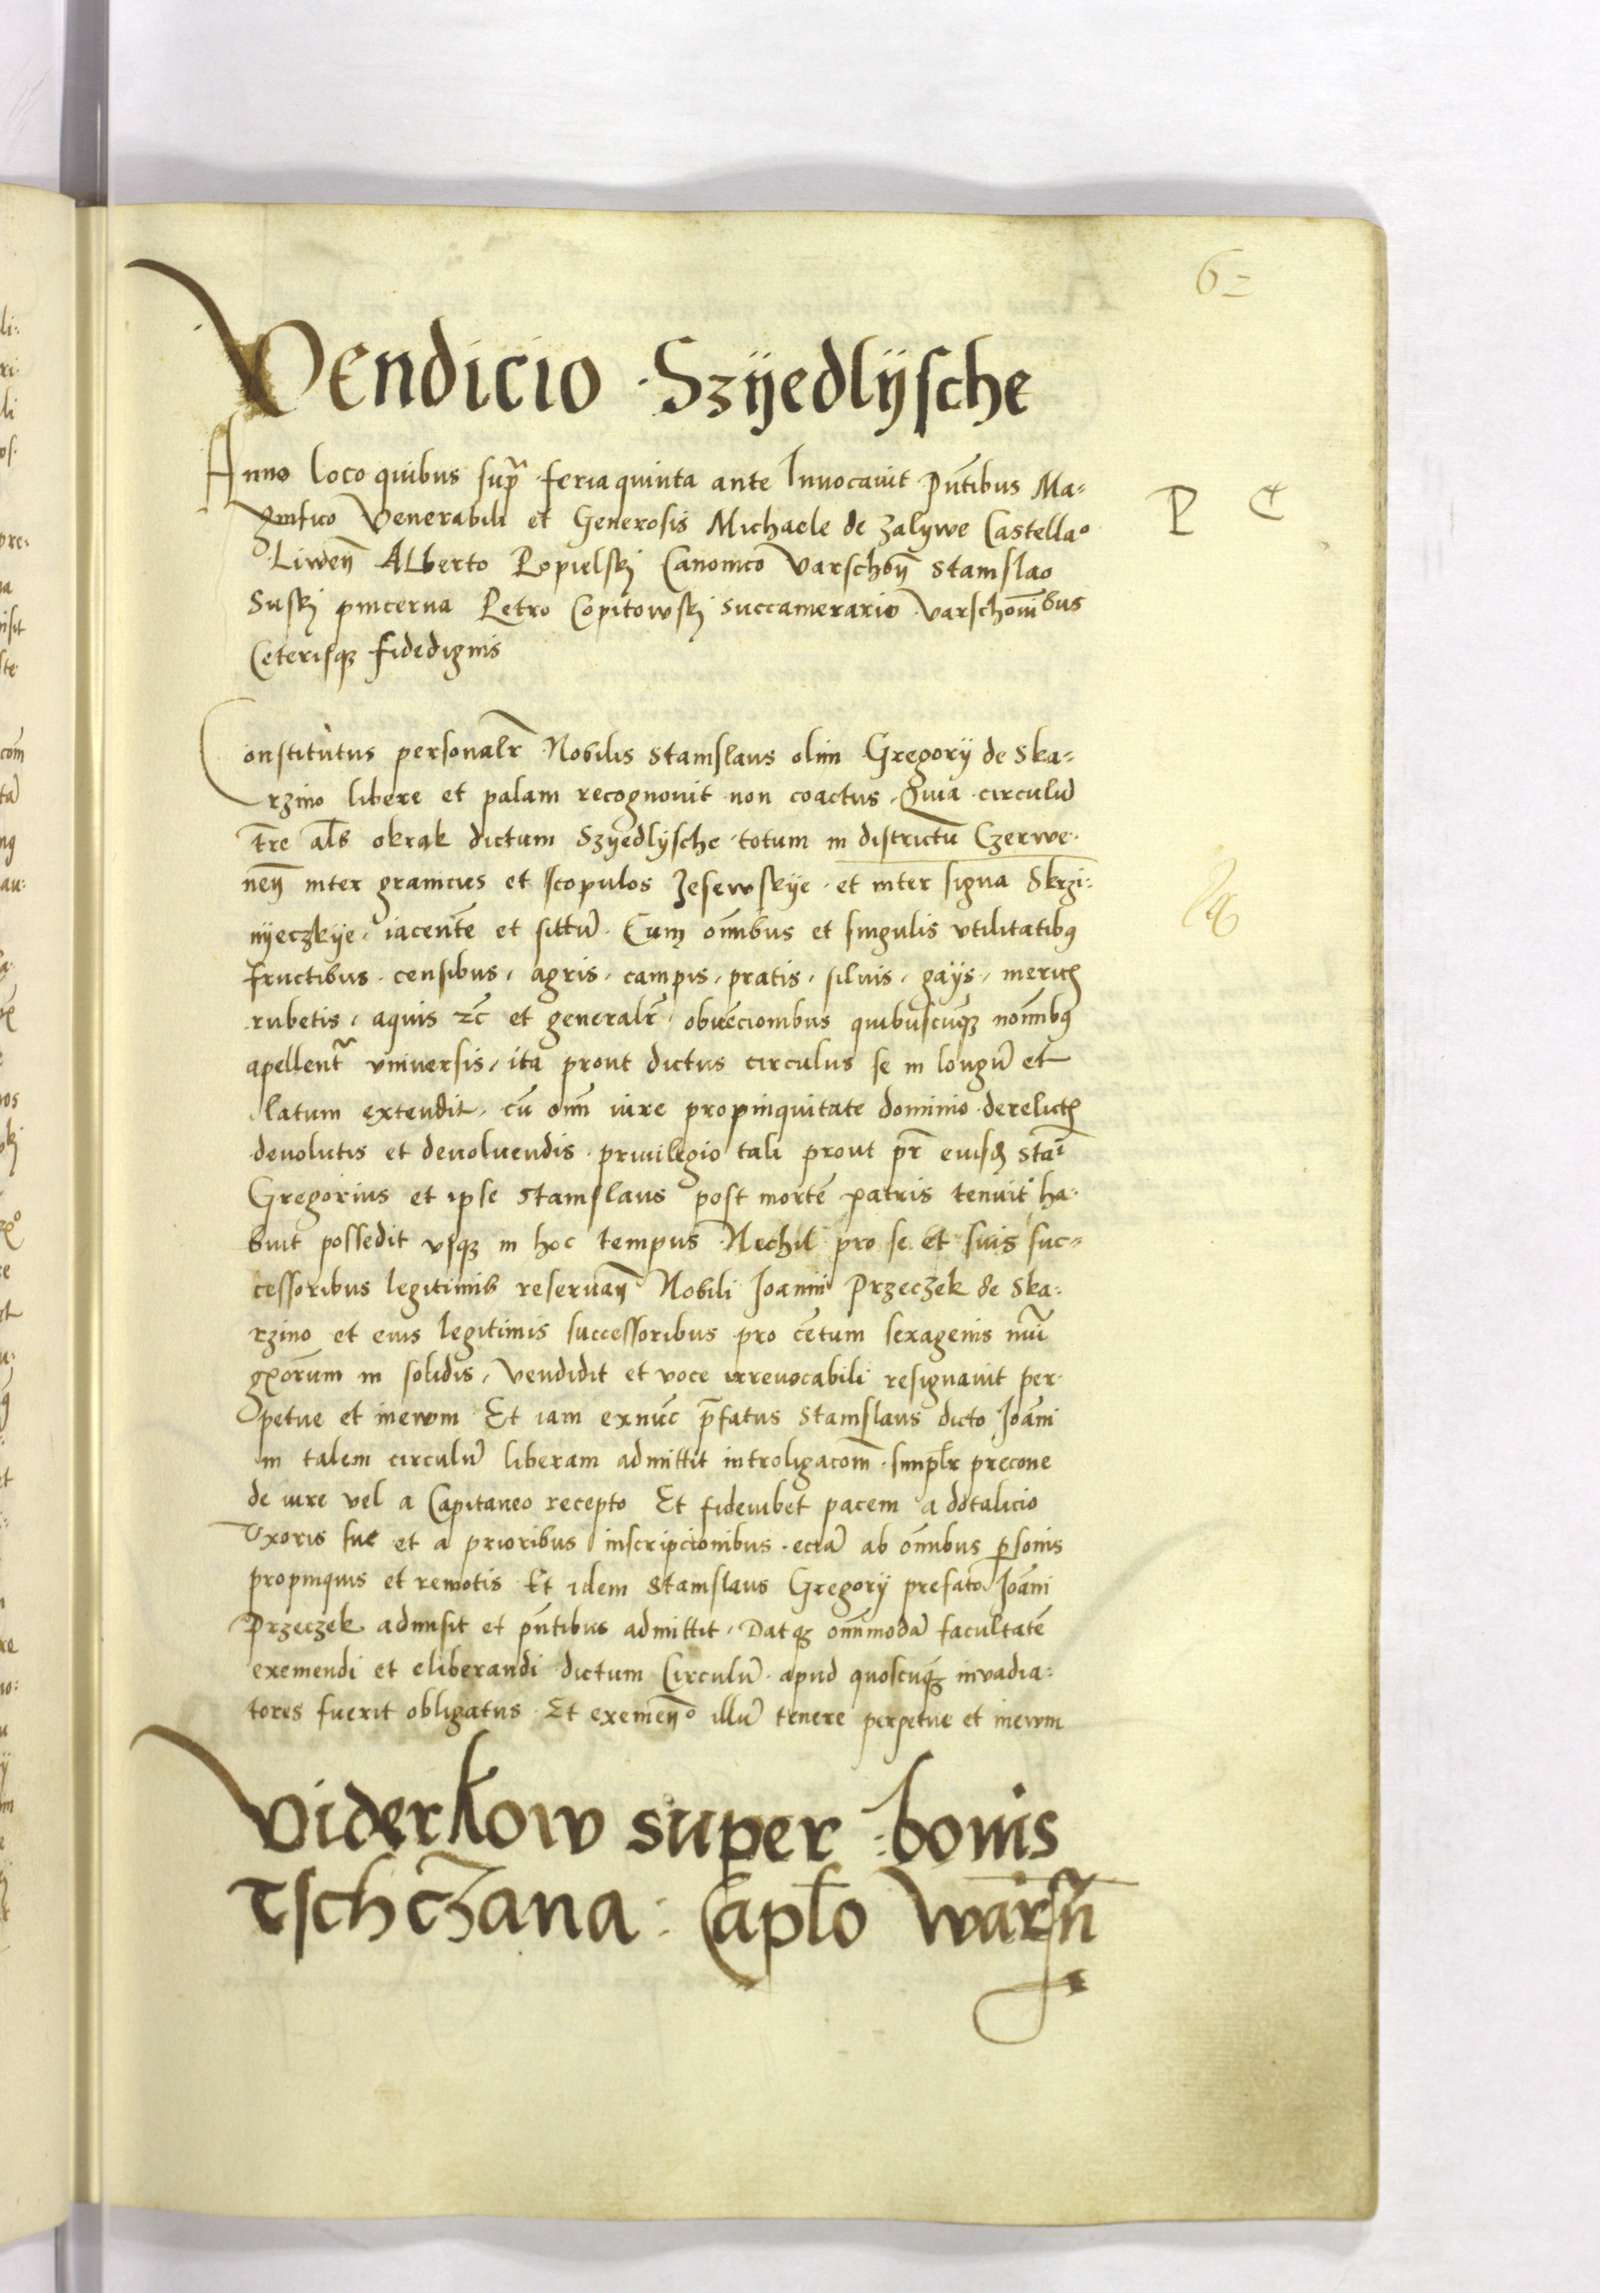 6=
Vendicio Szÿedlÿsche
Anno loco quibus supra feria quinta ante Invocavit Pñtibus Ma=
gnifico Venerabili et Generosis Michaele de Zalywe Castellao
Liweñ Alberto Popielskj Canonico Varschoviñ Stanislao
Suskj pincerna Petro Copitowskj succamerario Varschoviñ bus
Ceterisqz fidedignis
P C
Constitutus personalr Nobilis Stanislaus olim Gregorÿ de Ska=
rzino libere et palam recognovit non coactus Quia circulū
tre als okrąk dictum Szyedlÿsche totum in districtū Czerwe
neñ inter granicies et scopulos Zesewskÿe et inter signa Skrzi:
nÿeczkÿe iacentē et sittū Cum omnibus et singulis vtilitatibus
fructibus censibus agris campis pratis siluis gaÿs mericis
rubetis aquis zc̄ et generalr obuēcionibus quibuscūqz nominibus
apellentr vniuersis ita prout dictus circulus se in longū et
latum extendit cū omni iure propinquitate dominio derelictis
deuolutis et deuoluendis priuilegio tali prout pr̄ eiusdem Stai
Gregorius et ipse Stanislaus post mortē patris tenuit ha
buit possedit vsqz in hoc tempus Nechil pro se et suis suc=
cessoribus legitimis reseruañ Nobili Joanni Przeczek de Ska
rzino et eius legitimis successoribus pro centum sexagenis nūi
gxorum in solidis vendidit et voce irreuocabili resignauit per
petue et inewm Et iam exnūc p̄fatus Stanislaus dicto Joāni
in talem circulū liberam admittit introligacom̄ simplr precone
de iure vel a Capitaneo recepto Et fideiubet pacem a dotalicio
Vxoris sue et a prioribus inscripcionibus eciā ab omnibus psonis
propinquis et remotis Et idem Stanislaus Gregorÿ prefato Joāni
Przeczek admisit et pñtibus admittit Datqz omnimodā facultatē
exemendi et eliberandi dictum Circulū apud quoscūqz invadia=
tores fuerit obligatus Et exemeño illū tenere perpetue et inewm
Viderkow super bonis
Tschczana : Caplo Warsñ